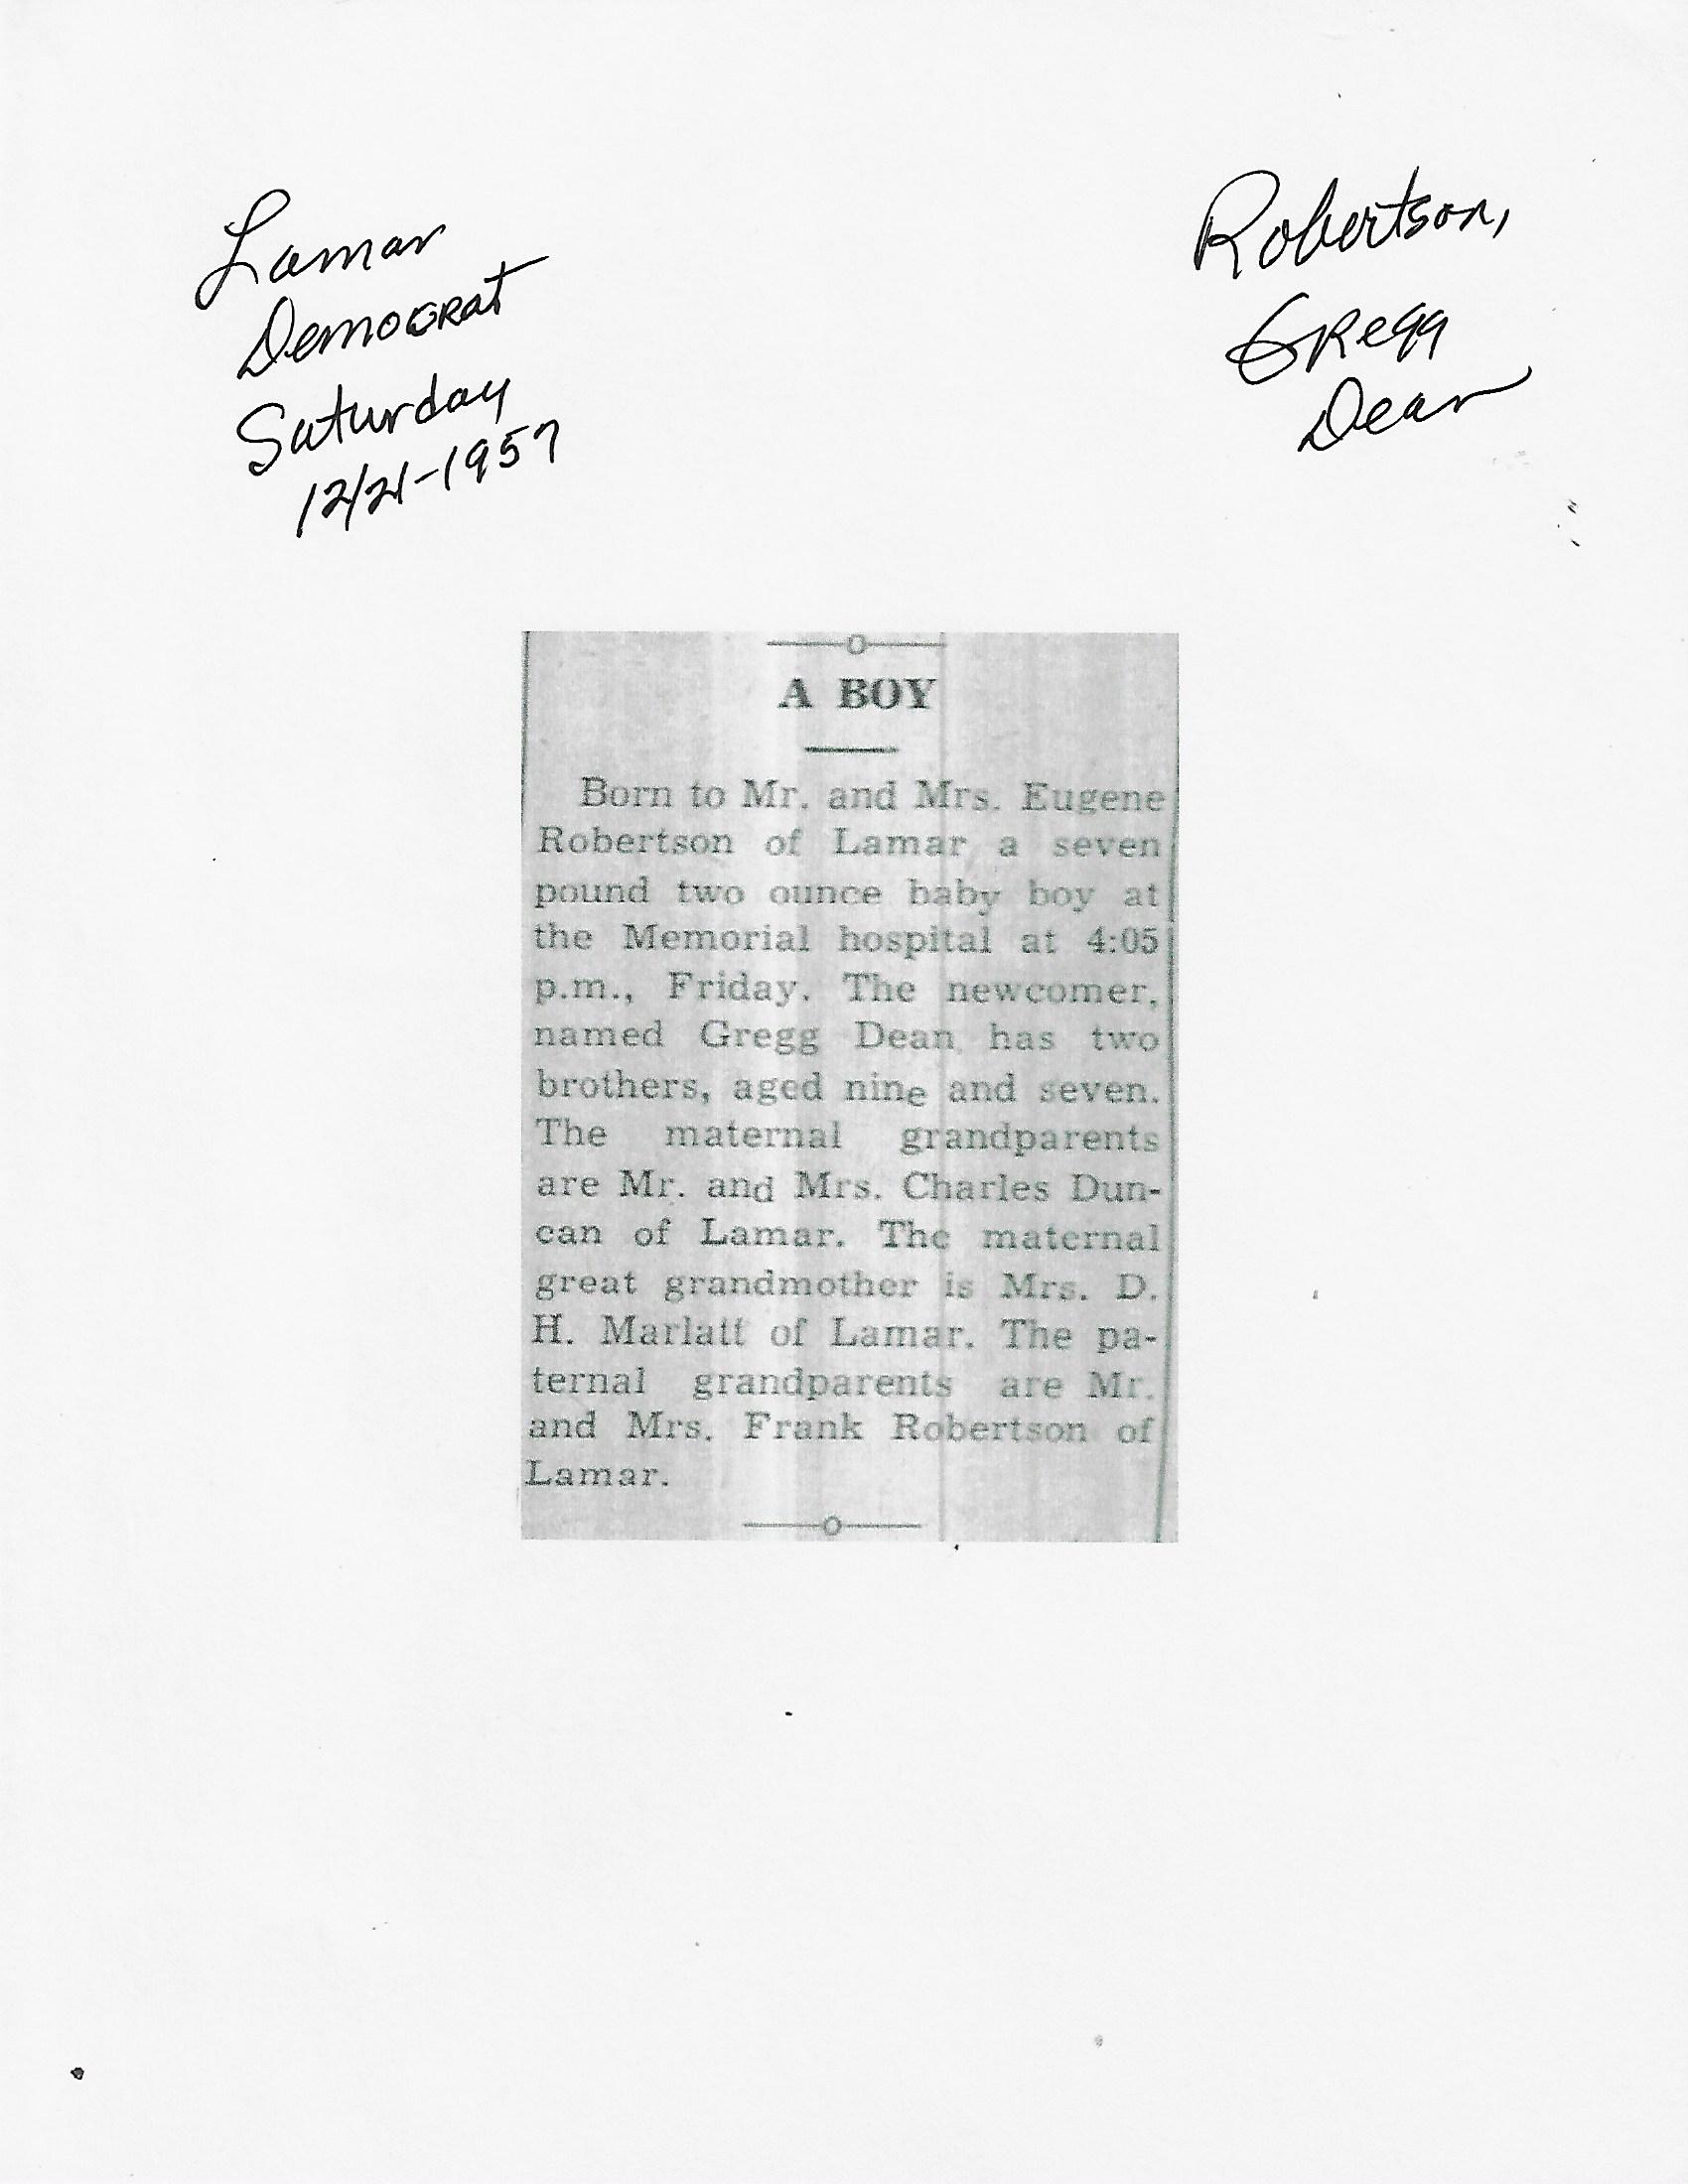 Lamar
Democrat
Saturday
12/21-1957
Robertson,
Gregg
Dean
A BOY
Born to Mr. and Mrs. Eugene
Robertson of Lamar a seven
pound two ounce baby boy at
the Memorial hospital at 4:05
p.m., Friday. The newcomer,
named Gregg Dean has two
brothers, aged nine and seven.
The maternal grandparents
are Mr. and Mrs. Charles Dun-
can of Lamar. The maternal
great grandmother is Mrs. D.
H. Marlatt of Lamar. The pa-
ternal grandparents are Mr.
and Mrs. Frank Robertson of
Lamar.